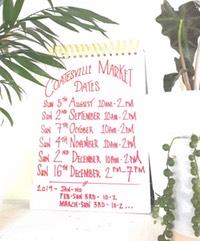 COATESVILLE MARKET
DATES
SUN 5TH AUGUST 10AM-2PM
SUN 2ND SEPTEMBER 10AM-2PM
SUN 7TH OCTOBER 10AM-2PM
SUN 4TH NOVEMBER 10AM-2PM
SUN 2ND DECEMBER 10AM-2PM
SUN 16TH DECEMBER 2PM-7PM
2019 - JAN-NO
FEB-SUN 3RD - 10-2
MARCH-SUN 3RD - 10-2...